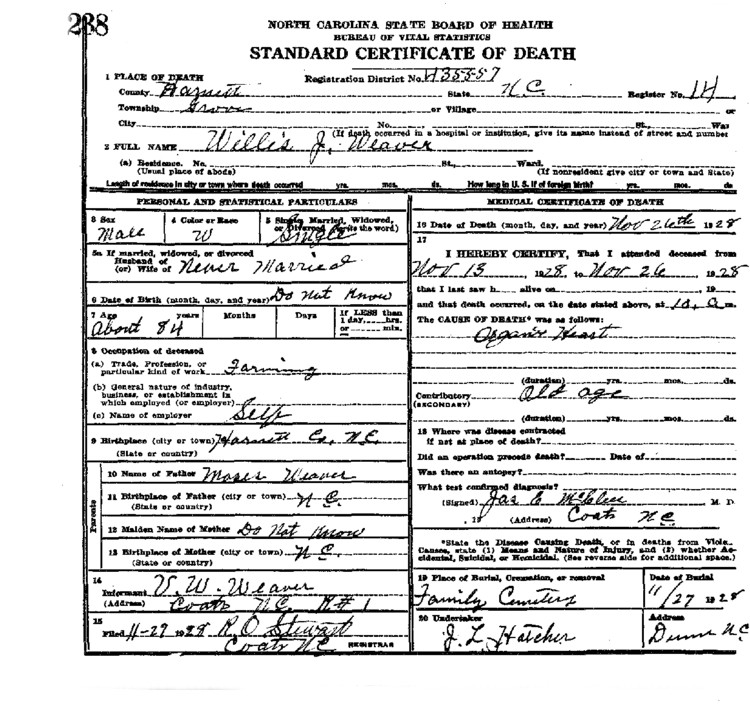 238
NORTH CAROLINA STATE BOARD OF HEALTH
BUREAU OF VITAL STATISTICS
STANDARD CERTIFICATE OF DEATH
1 PLACE OF DEATH Registration District No. 435557
County Harnett State N.C. Register No. 14
Township Grove or Village or
City No. St., War
(If death occurred in a hospital or institution, give its name instead of street and number
2 FULL NAME Willis J. Weaver
(a) Residence. No. St., Ward.
(Usual place of abode) (If nonresident give city or town and State)
Length of residence in city or town where death occurred yrs. mos. ds. How long in U. S. if of foreign birth? yrs. mos. ds.
PERSONAL AND STATISTICAL PARTICULARS
3 Sex 4 Color or Race 5 Single, Married, Widowed,
or Divorced (write the word)
Male W Single
5a If married, widowed, or divorced
Husband of
(or) Wife of Never Married
6 Date of Birth (month, day, and year) Do Not Know
7 Age years Months Days If LESS than
1 day, hrs.
or min.
About 84
8 Occupation of deceased
(a) Trade, Profession, or
particular kind of work Farming
(b) General nature of industry,
business, or establishment in
which employed (or employer)
(c) Name of employer Self
9 Birthplace (city or town) Harnett Co, N.C.
(State or country)
10 Name of Father Moses Weaver
11 Birthplace of Father (city or town) N C.
(State or country)
Parents
12 Maiden Name of Mother Do Not Know
13 Birthplace of Mother (city or town) N C.
(State or country)
14
Informant V. W. Weaver
(Address) Coats N.C. R#1
15
Filed 11-29 1928 R O Stewart
Coats NC REGISTRAR
MEDICAL CERTIFICATE OF DEATH
16 Date of Death (month, day, and year) Nov 26th 1928
17
I HEREBY CERTIFY, That I attended deceased from
Nov 13, 1928, to Nov 26, 1928
that I last saw h alive on , 19
and that death occurred, on the date stated above, at 10, a m.
The CAUSE OF DEATH* was as follows:
Organic Heart
(duration) yrs. mos. ds.
Contributory Old age
(SECONDARY)
(duration) yrs. mos. ds.
18 Where was disease contracted
if not at place of death?
Did an operation precede death? Date of
Was there an autopsy?
What test confirmed diagnosis?
(Signed) Jas E M. D.
, 19 (Address) Coats NC
*State the Disease Causing Death, or in deaths from Viole
Causes, state (1) Means and Nature of Injury, and (2) whether Ac-
cidental, Suicidal, or Homicidal. (See reverse side for additional space.)
19 Place of Burial, Cremation, or removal Date of Burial
Family Cemetery 11/27 1928
20 Undertaker Address
J. L. Hatcher Dunn N C